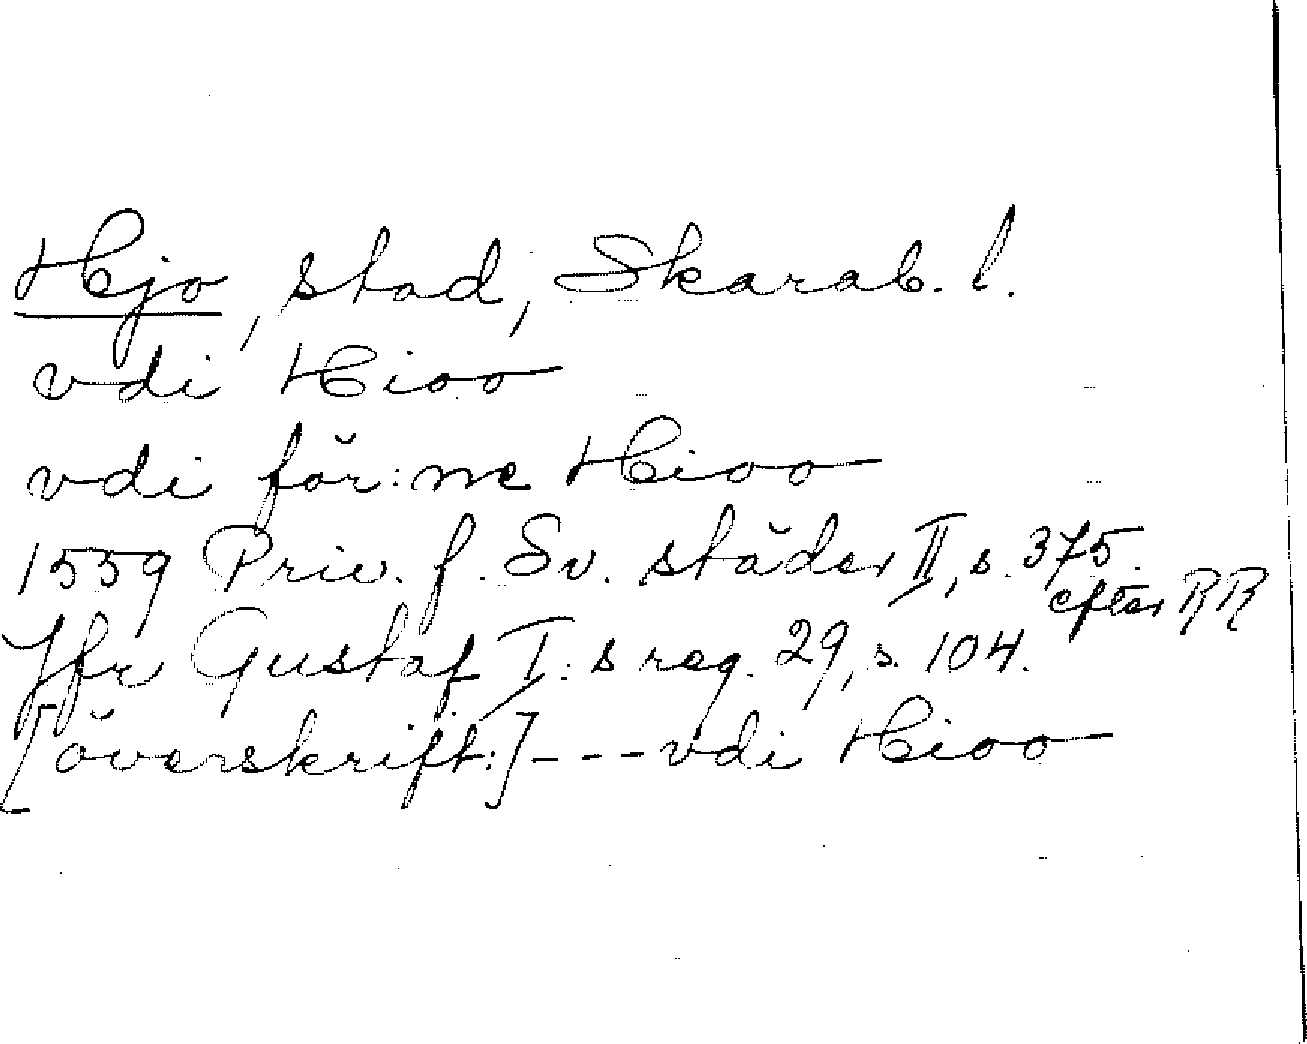 Hjo, stad, Skarab. l.
vdi Hioo
vdi för:ne Hioo
1559 Priv. f. Sv. städer II, s. 375.
efter RR
Jfr Gustaf I:s reg. 29, s. 104.
[överskrift:] --- vdi Hioo